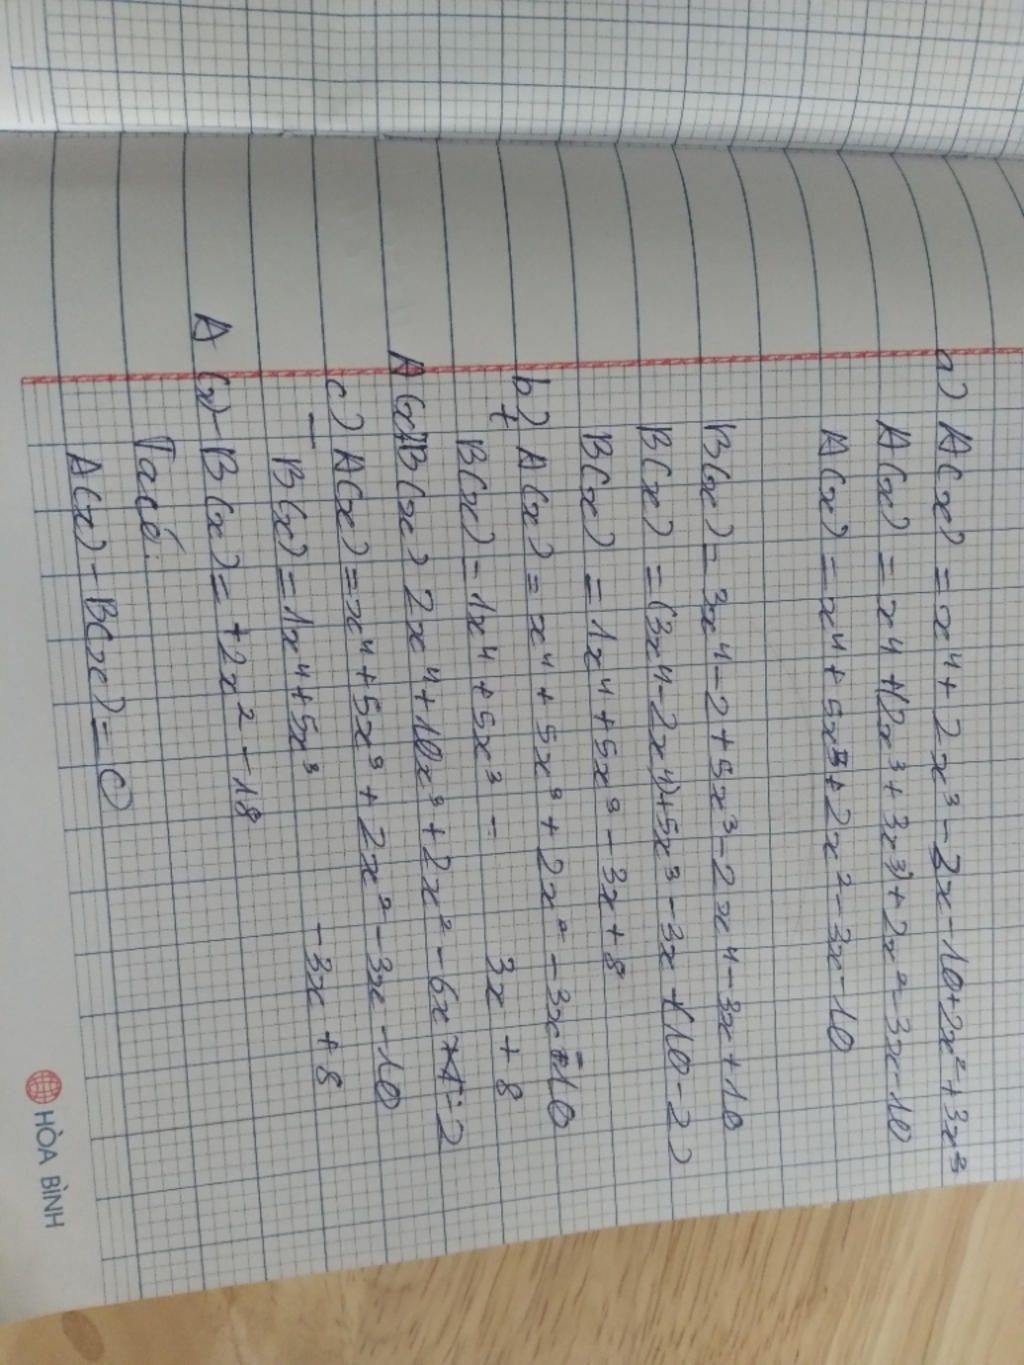 a) A(x) = x⁴ + 2x³ - 3x - 10 + 2x² + 3x³
A(x) = x⁴ + (2x³ + 3x³) + 2x² - 3x - 10
A(x) = x⁴ + 5x³ + 2x² - 3x - 10
B(x) = 3x⁴ - 2 + 5x³ - 2x⁴ - 3x + 10
B(x) = (3x⁴ - 2x⁴) + 5x³ - 3x + (10 - 2)
B(x) = 1x⁴ + 5x³ - 3x + 8
b) A(x) = x⁴ + 5x³ + 2x² - 3x - 10
+
B(x) = 1x⁴ + 5x³ - 3x + 8
A(x)+B(x) 2x⁴ + 10x³ + 2x² - 6x - 2
c) A(x) = x⁴ + 5x³ + 2x² - 3x - 10
-
B(x) = 1x⁴ + 5x³ - 3x + 8
A(x) - B(x) = + 2x² - 18
Ta có:
A(x) - B(x) = 0
HÒA BÌNH